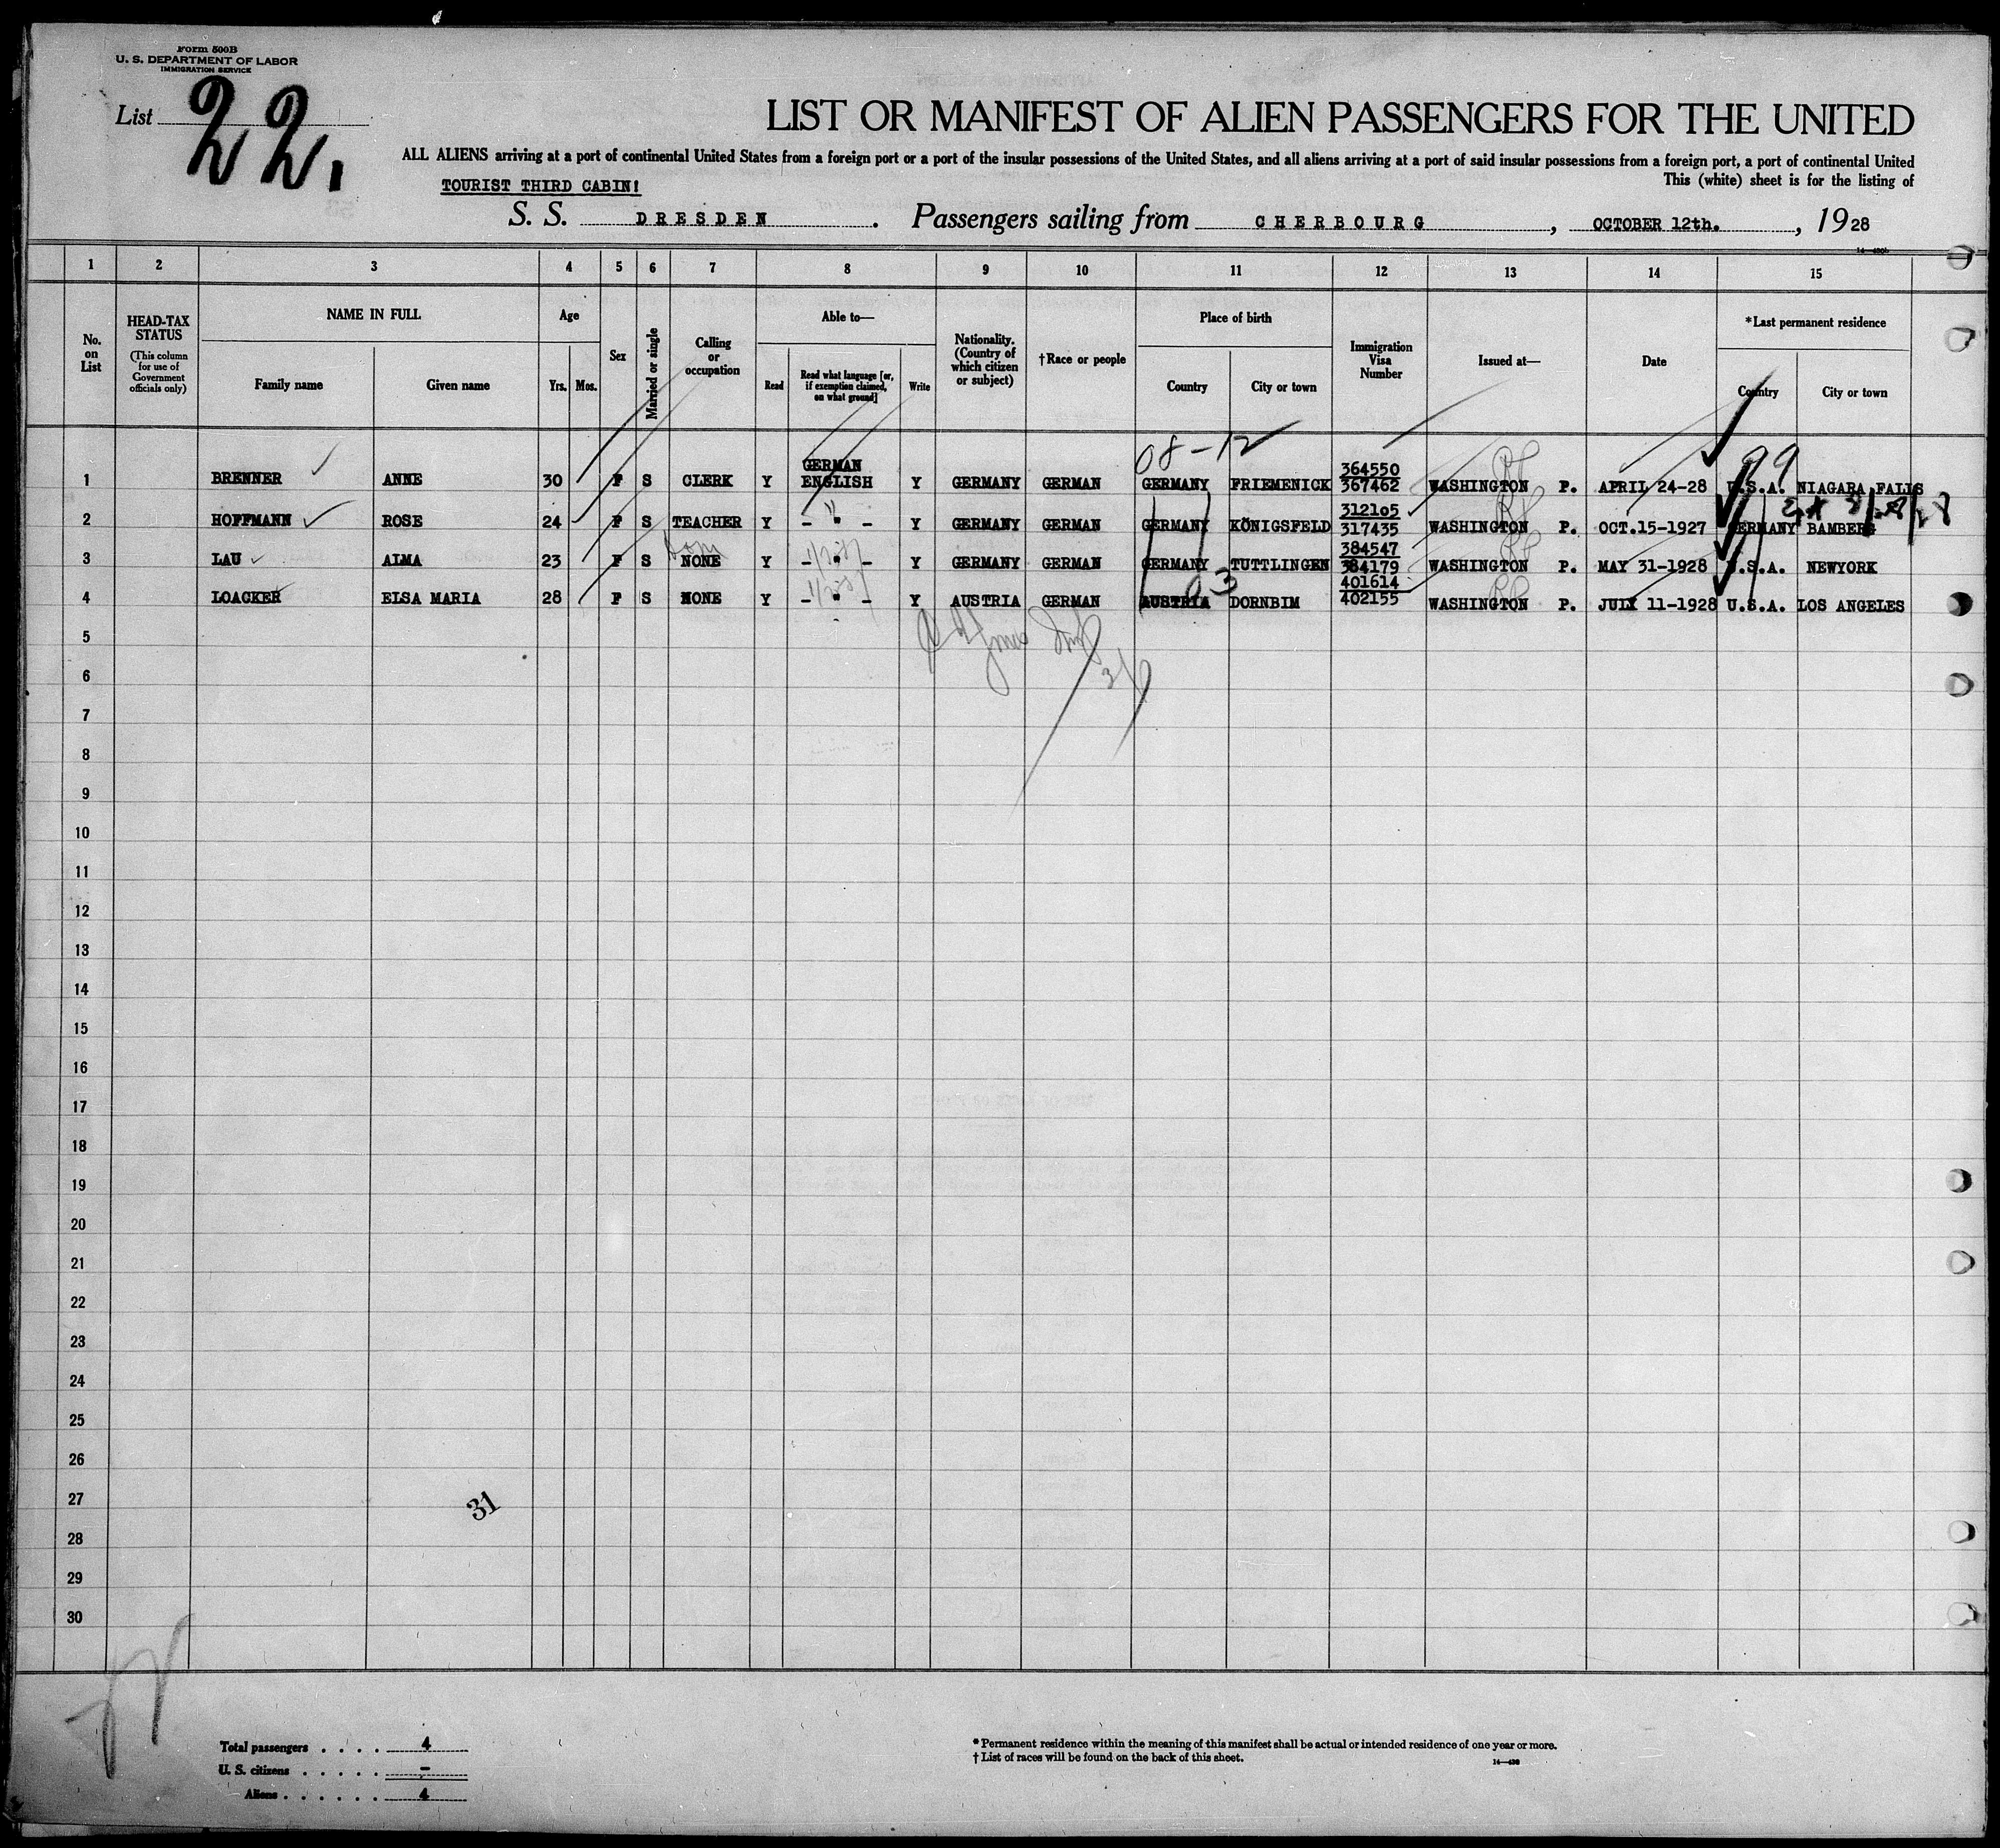 Form 500B
U. S. DEPARTMENT OF LABOR
IMMIGRATION SERVICE
List 22.
LIST OR MANIFEST OF ALIEN PASSENGERS FOR THE UNITED
ALL ALIENS arriving at a port of continental United States from a foreign port or a port of the insular possessions of the United States, and all aliens arriving at a port of said insular possessions from a foreign port, a port of continental United
This (white) sheet is for the listing of
TOURIST THIRD CABIN!
S. S. DRESDEN. Passengers sailing from CHERBOURG, OCTOBER 12th., 1928
1 2 3 4 5 6 7 8 9 10 11 12 13 14 15
No. on List
HEAD-TAX STATUS
(This column for use of Government officials only)
NAME IN FULL
Family name Given name
Age
Yrs. Mos.
Sex
Married or single
Calling or occupation
Able to—
Read
Read what language [or, if exemption claimed, on what ground]
Write
Nationality. (Country of which citizen or subject)
†Race or people
Place of birth
Country City or town
Immigration Visa Number
Issued at—
Date
*Last permanent residence
Country City or town
08-12 99
1 BRENNER ANNE 30 F S CLERK Y GERMAN ENGLISH Y GERMANY GERMAN GERMANY FRIEMENICK 364550 367462 WASHINGTON P. APRIL 24-28 U.S.A. NIAGARA FALLS
2 HOFFMANN ROSE 24 F S TEACHER Y - " - Y GERMANY GERMAN GERMANY KÖNIGSFELD 312105 317435 WASHINGTON P. OCT.15-1927 GERMANY BAMBERG
3 LAU ALMA 23 F S NONE Y - " - Y GERMANY GERMAN GERMANY TUTTLINGEN 384547 384179 WASHINGTON P. MAY 31-1928 U.S.A. NEWYORK
03
4 LOACKER ELSA MARIA 28 F S NONE Y - " - Y AUSTRIA GERMAN AUSTRIA DORNBIM 401614 402155 WASHINGTON P. JULY 11-1928 U.S.A. LOS ANGELES
5
6
7
8
9
10
11
12
13
14
15
16
17
18
19
20
21
22
23
24
25
26
27
28
29
30
31
Total passengers . . . . 4
U. S. citizens . . . . . -
Aliens . . . . . . 4
* Permanent residence within the meaning of this manifest shall be actual or intended residence of one year or more.
† List of races will be found on the back of this sheet.
14—430